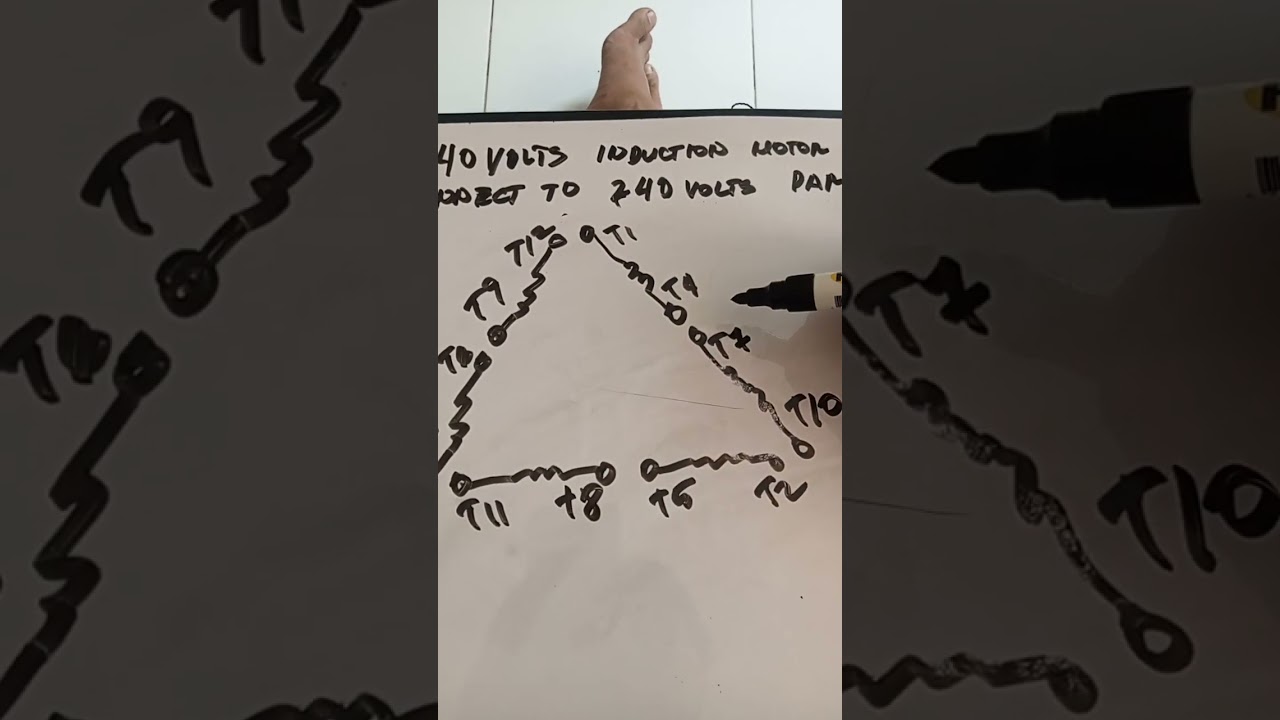 40 VOLTS INDUCTION MOTOR
NNECT TO 240 VOLTS PAR
T12 T1
T9 T4
T7
T10
T11 T8 T6 T2